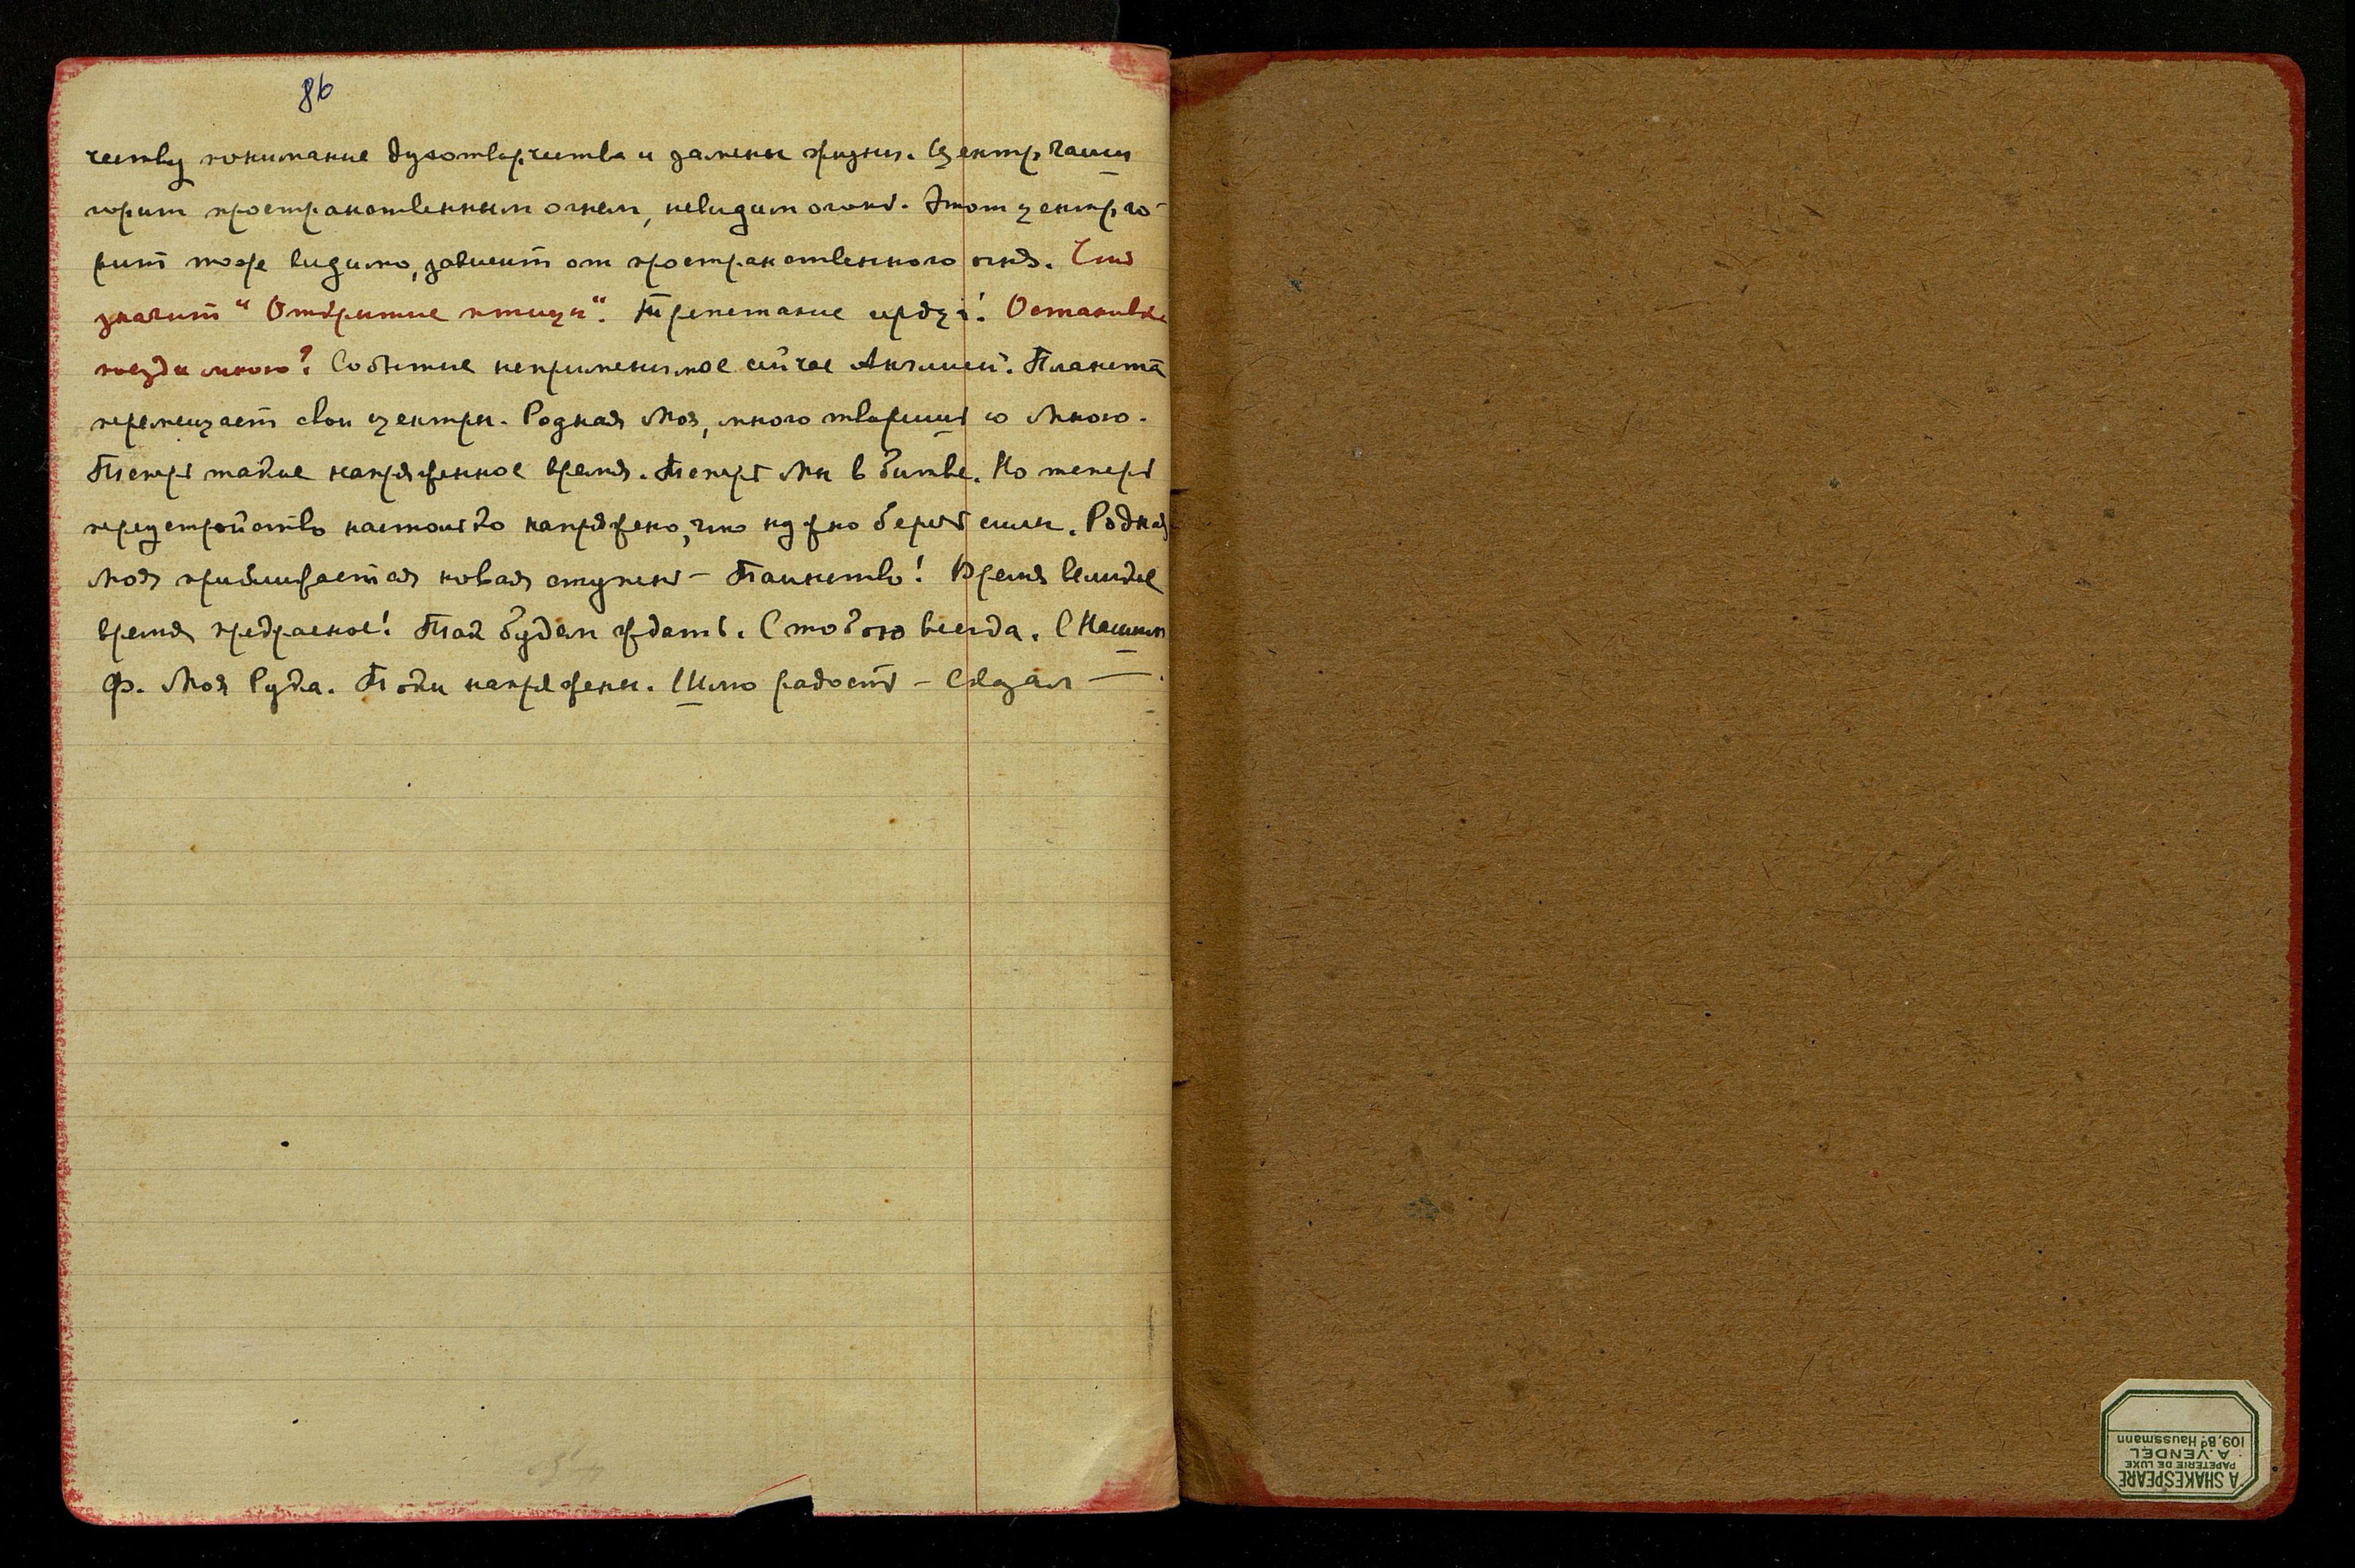 86
честву понимание духотворчества и замены жизни. Центр Чаши
горит пространственным огнем, невидим огонь. Этот центр го-
рит тоже видимо, зависит от пространственного огня. Что
значит "Открытие птицы". Трепетание сердца! Остановка
поезда мною? Событие неприменимое сейчас Англией. Планета
перемещает свои центры. Родная Моя, много творишь со Мною.
Теперь такое напряженное время. Теперь Мы в битве. Но теперь
переустройство настолько напряжено, что нужно беречь силы. Родная
Моя приближается новая ступень – Таинство! Время великое
время прекрасное! Так будем ждать. С тобою всегда. С Нашим
Ф. Моя Рука. Токи напряжены. Шлю радость – Сказал —.
A SHAKESPEARE
PAPETERIE DE LUXE
A. VENDEL
109, Bd Haussmann